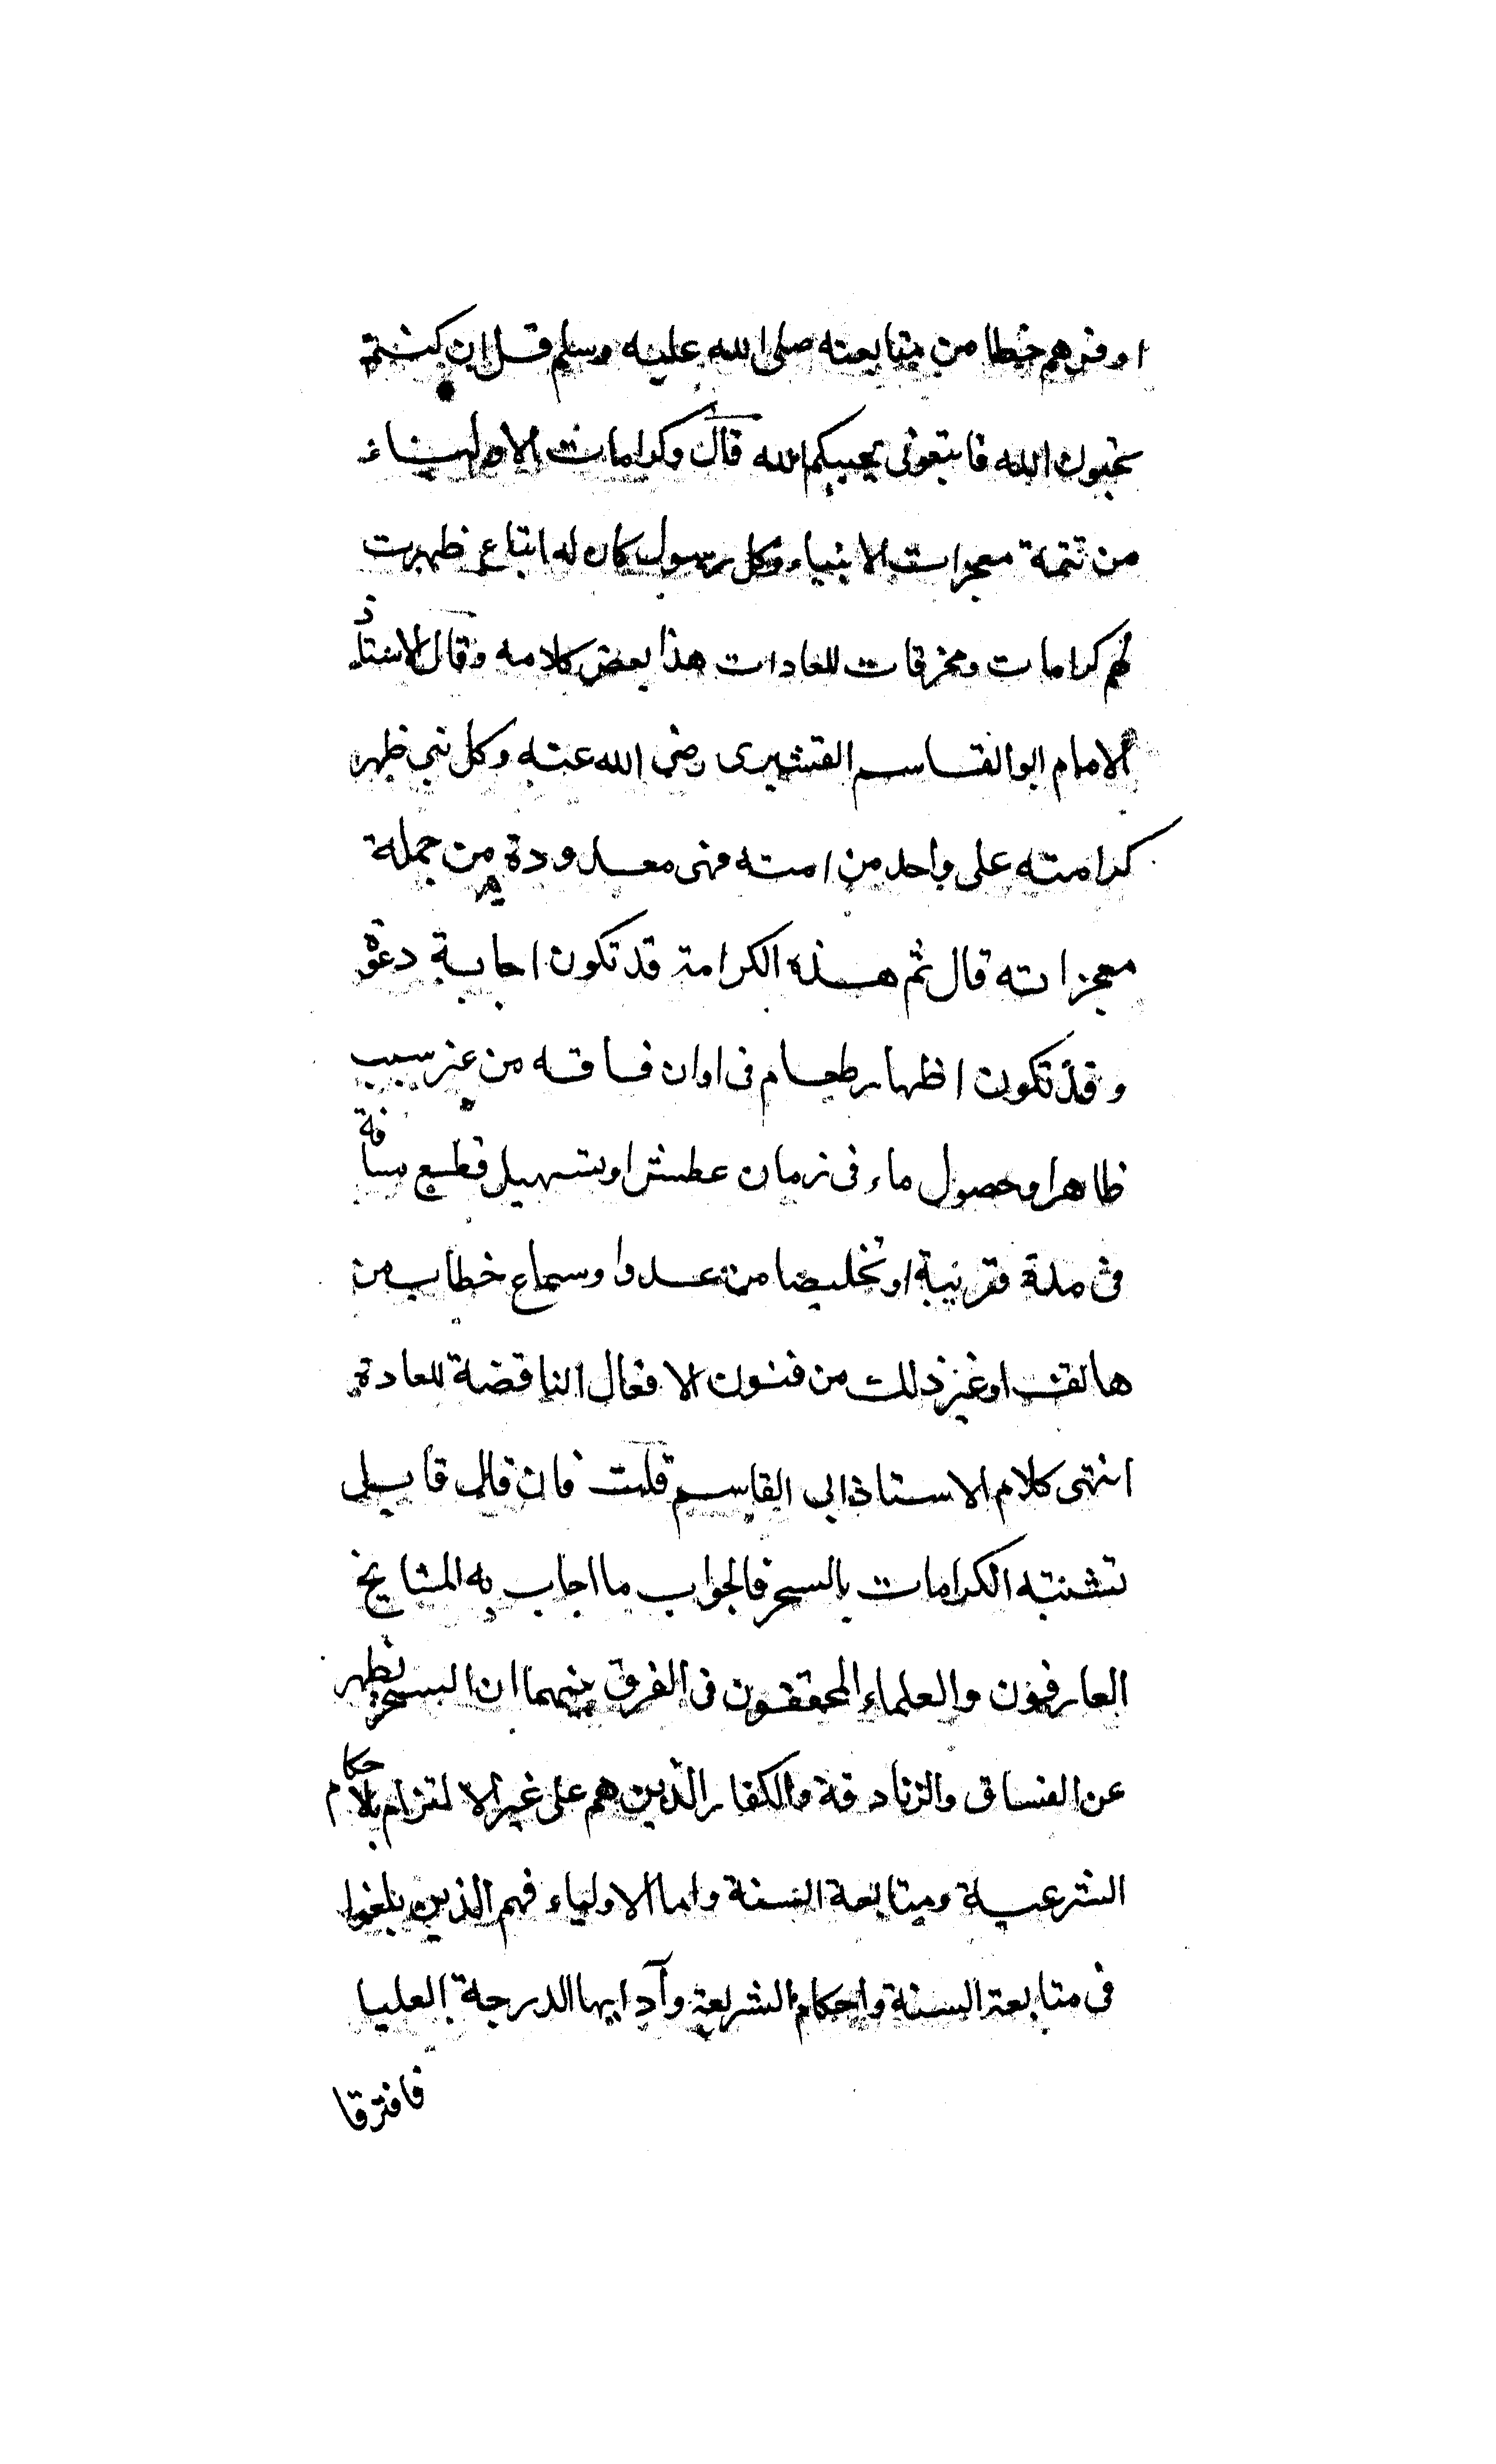 اوفرهم خطا من متابعته صلى الله عليه وسلم قل ان كنتم
تحبون الله فاتبعونى يحببكم الله قال وكرامات الاولياء
من تتمة معجزات الانبياء وكل رسول كان له اتباع ظهرت
لهم كرامات ومخرقات للعادات هذا بعض كلامه وقال الاستاذ
الامام ابو القاسم القشيرى رضي الله عنه وكل نبي ظهر
كرامته على واحد من امته فهى معدودة من جملة
معجزاته قال ثم هذه الكرامة قد تكون اجابة دعوة
وقد تكون اظهار طعام فى اوان فاقه من غير سبب
ظاهر او حصول ماء فى زمان عطش او تسهيل قطع مسافة
فى مدة قريبة او تخليصا من عدو او سماع خطاب من
هاتف او غير ذلك من فنون الافعال الناقضة للعادة
انتهى كلام الاستاذ ابى القاسم قلت فان قال قايل
تشتبه الكرامات بالسحر فالجواب ما اجاب به المشايخ
العارفون والعلماء المحققون فى الفرق بينهما ان السحر يظهر
عن الفساق والزنادقة والكفار الذين هم على غير الالتزام بالاحكام
الشرعية ومتابعة السنة واما الاولياء فهم الذين بلغوا
فى متابعة السنة واحكام الشريعة وآدابها الدرجة العليا
فافترقا